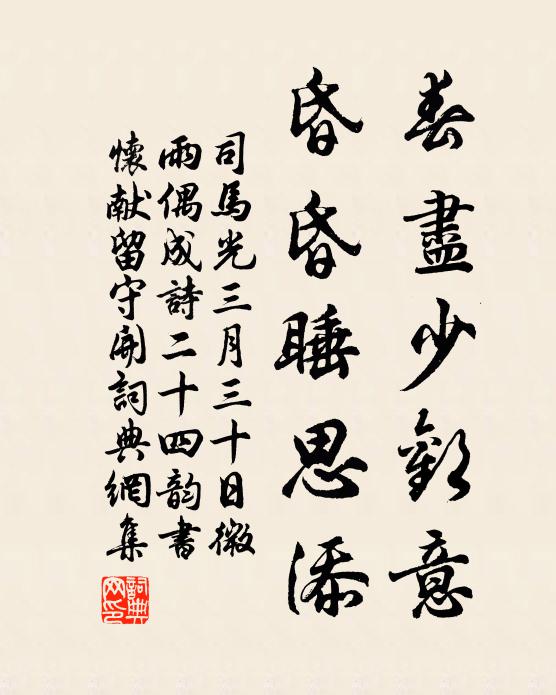 春盡少歡意
昏昏睡思添
司馬光三月三十日微
雨偶成詩二十四韵書
懷献留守開詞典網集
詞典
网印